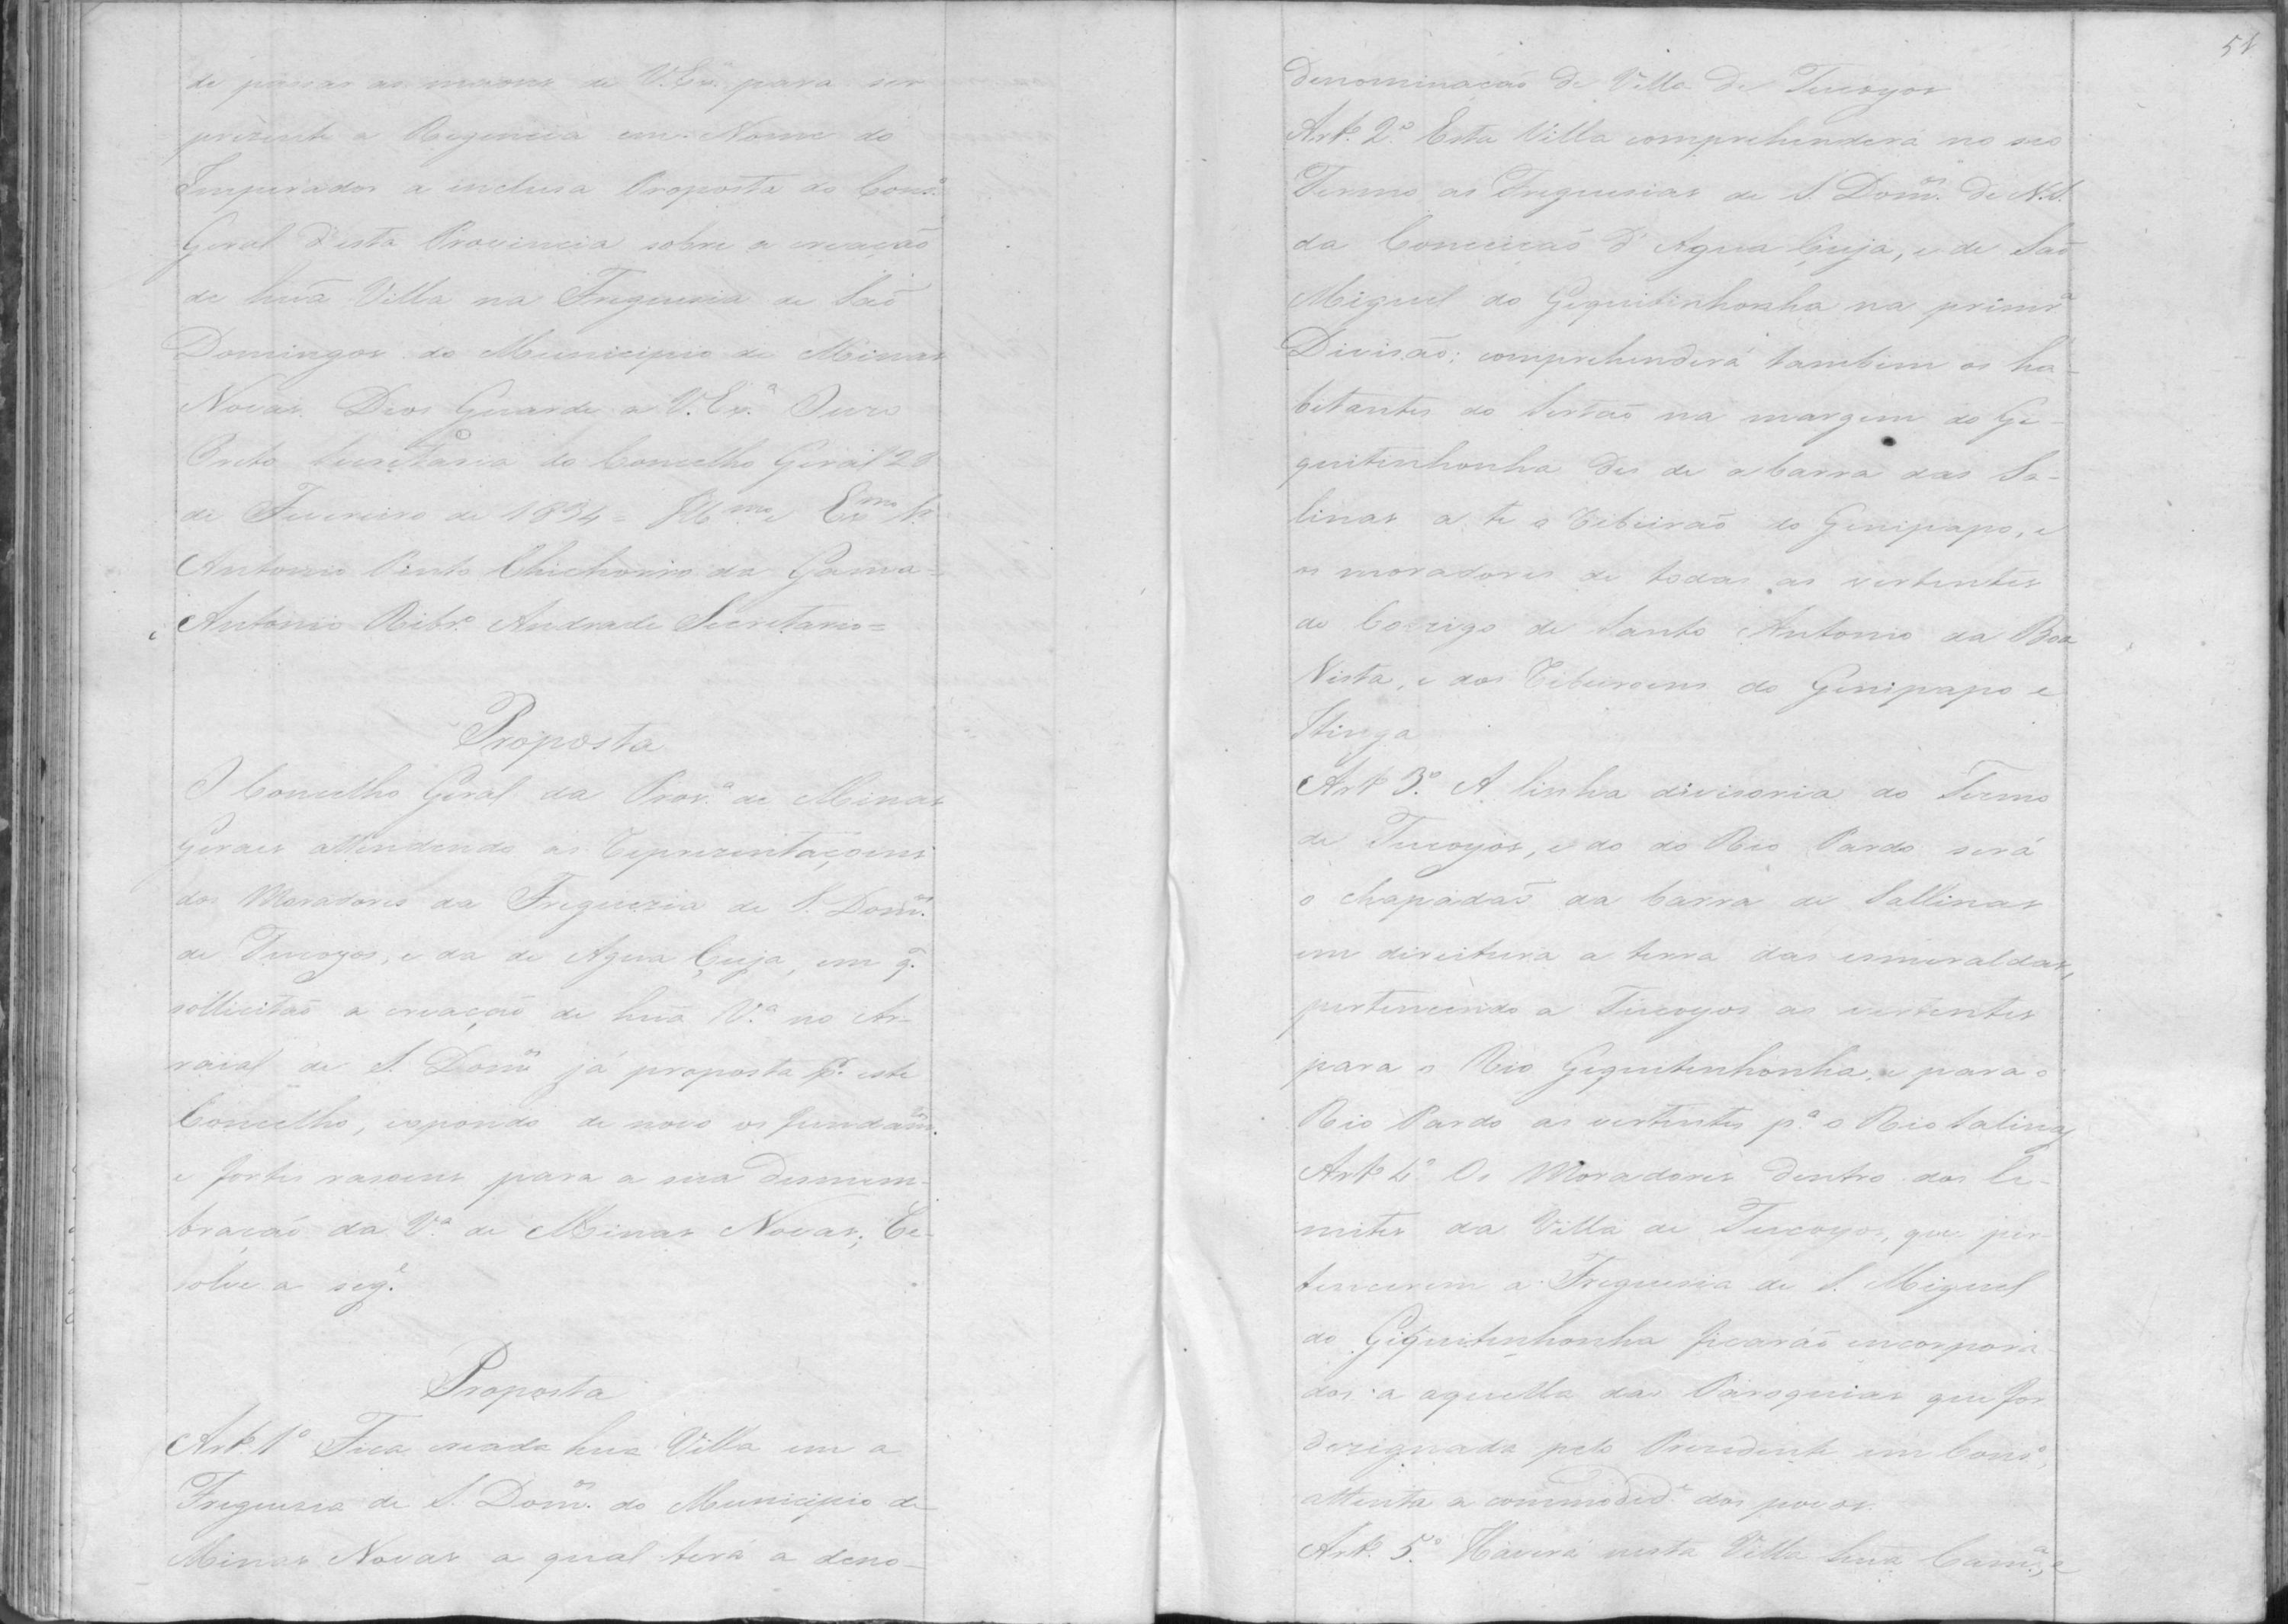 de passar as maons de V. Ex.ª para ser
prezente a Regencia em Nome do
Imperador a incluza Proposta do Cons.º
Geral desta Provincia sobre a creação
de huã Villa na Freguesia de São
Domingos do Municipio de Minas
Novas. Deos Guarde a V. Ex.ª Ouro
Preto Secretaria do Concelho Geral 20
de Fevereiro de 1834 = Ill.mo e Ex.mo Sr.
Antonio Pinto Chichorro da Gama =
Antonio Ribr.º Andrade Secretario =
Proposta
O Concelho Geral da Prov.ª de Minas
Geraes attendendo as Reprezentaçoens
dos Moradores da Freguezia de S. Dom.os
de Tucoyos, e da de Agua Çuja, em q.
sollicitão a creação de huã V.ª no Ar-
raial de S. Dom.os já proposta p.r este
Concelho, expondo de novo os fundam.
e fortes rasoens para a sua desmem-
bração da V.ª de Minas Novas; Re-
solve a seg.e
Proposta
Art.º 1.º Fica creada hua Villa em a
Freguesia de S. Dom.os do Municipio de
Minas Novas a qual terá a deno-
51
denominação de Villa de Tucoyos
Art.º 2.º Esta Villa comprehenderá no seo
Termo as Freguesias de S. Dom.os de N. S.
da Conceicão d'Agua Çuja, e de São
Miguel do Gequitinhonha na primr.ª
Divisão; comprehenderá tambem os ha-
bitantes do Sertão na margem do Ge-
quitinhonha des de a barra das Sa-
linas a te o Ribeirão do Genipapo, e
os moradores de todas as vertentes
do Corrigo de Santo Antonio da Boa
Vista, e dos Ribeiroens do Genipapo e
Itinga
Art.º 3.º A linha divisoria do Termo
de Tucoyos, e do do Rio Pardo será
o chapadão da barra de Sallinas
em direitura a terra das esmeraldas,
pertencendo a Tucoyos as vertentes
para o Rio Gequitinhonha, e para o
Rio Pardo as vertentes p.ª o Rio Salinas
Art.º 4.º Os Moradores dentro dos li-
mites da Villa de Tucoyos, que per-
tencerem a Freguesia de S. Miguel
do Giquitinhonha ficarão encorpora
dos a aquella das Paroquias que for
dezignada pelo Prezidente em Cons.º,
attenta a commodid.e dos povos.
Art.º 5.º Haverá nesta Villa huã Cam.ª, e